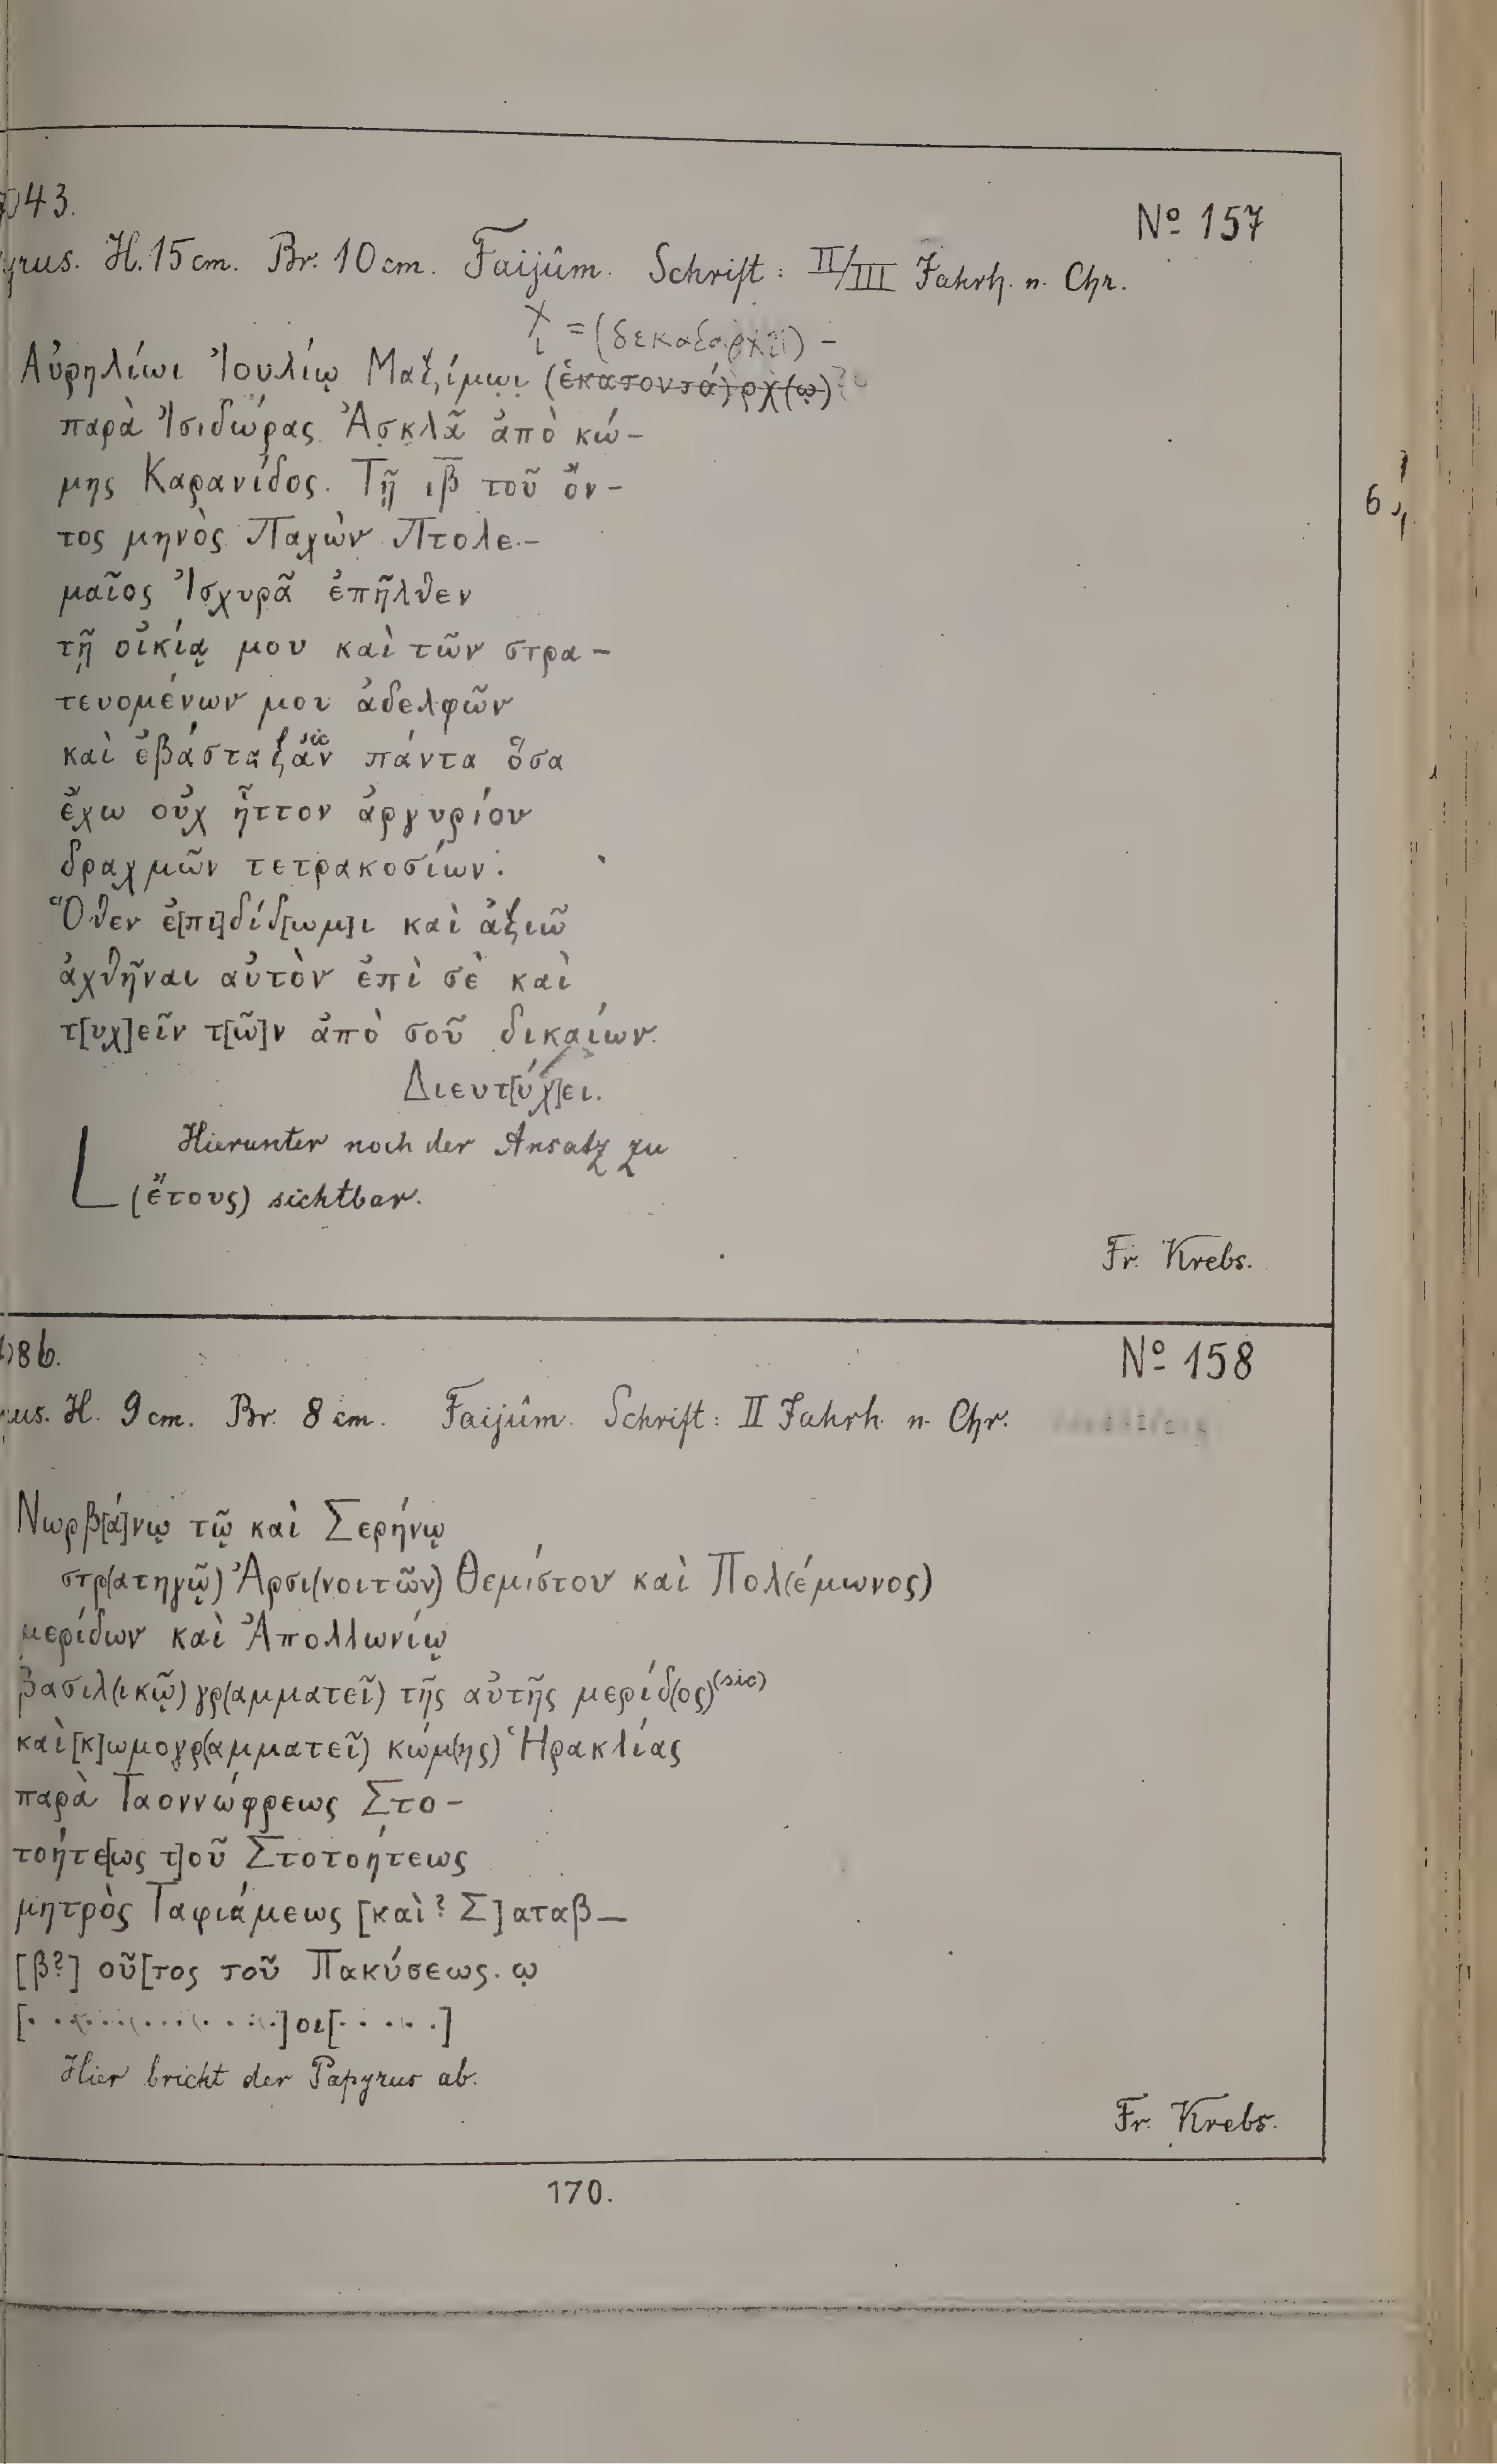 043.
Nº 157
yrus. H. 15 cm. Br. 10 cm. Faijûm. Schrift: II/III Jahrh. n. Chr.
= (δεκαδάρχῃ) –
Αὐρηλίωι Ἰουλίῳ Μαξίμωι (ἑκατοντά)ρχ(ῳ)
παρὰ Ἰσιδώρας Ἀσκλᾶ ἀπὸ κώ–
μης Καρανίδος. Τῇ ιβ̅ τοῦ ὄν–
τος μηνὸς Παχὼν Πτολε–
μαῖος Ἰσχυρᾶ ἐπῆλθεν
τῇ οἰκίᾳ μου καὶ τῶν στρα–
τευομένων μου ἀδελφῶν
καὶ ἐβάσταξάν sic πάντα ὅσα
ἔχω οὐχ ἧττον ἀργυρίου
δραχμῶν τετρακοσίων.
Ὅθεν ἐ[πι]δίδ[ωμ]ι καὶ ἀξιῶ
ἀχθῆναι αὐτὸν ἐπὶ σὲ καὶ
τ[υχ]εῖν τ[ῶ]ν ἀπὸ σοῦ δικαίων.
Διευτ[ύχ]ει.
Hierunter noch der Ansatz zu
L (ἔτους) sichtbar.
Fr. Krebs.
86.
Nº 158
us. H. 9 cm. Br. 8 cm. Faijûm. Schrift: II Jahrh. n. Chr.
Νωρβ[ά]νῳ τῷ καὶ Σερήνῳ
στρ(ατηγῷ) Ἀρσι(νοιτῶν) Θεμίστου καὶ Πολ(έμωνος)
μερίδων καὶ Ἀπολλωνίῳ
βασιλ(ικῷ) γρ(αμματεῖ) τῆς αὐτῆς μερίδ(ος) (sic)
καὶ [κ]ωμογρ(αμματεῖ) κώμ(ης) Ἡρακλίας
παρὰ Ταοννώφρεως Στο–
τοήτε[ως τ]οῦ Στοτοήτεως
μητρὸς Ταφιάμεως [καὶ? Σ]αταβ–
[β?] οῦ[τος τοῦ Πακύσεως. ῳ
[. . . . . . . . . . . .]οι[. . . . .]
Hier bricht der Papyrus ab.
Fr. Krebs.
170.